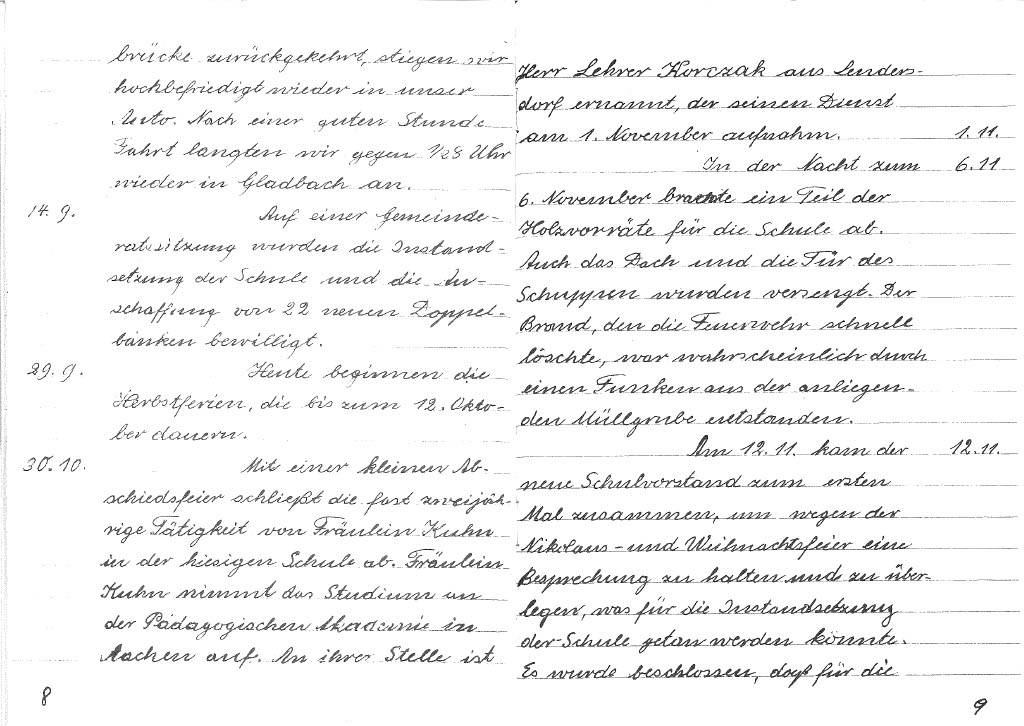 brücke zurückgekehrt, stiegen wir
hochbefriedigt wieder in unser
Auto. Nach einer guten Stunde
Fahrt langten wir gegen ½8 Uhr
wieder in Gladbach an.
14. 9. Auf einer Gemeinde-
ratssitzung wurden die Instand-
setzung der Schule und die An-
schaffung von 22 neuen Doppel-
bänken bewilligt.
29. 9. Heute beginnen die
Herbstferien, die bis zum 12. Okto-
ber dauern.
30. 10. Mit einer kleinen Ab-
schiedsfeier schließt die fast zweijäh-
rige Tätigkeit von Fräulein Kuhn
in der hiesigen Schule ab. Fräulein
Kuhn nimmt das Studium an
der Pädagogischen Akademie in
Aachen auf. An ihrer Stelle ist
8
Herr Lehrer Korczak aus Lenders-
dorf ernannt, der seinen Dienst
am 1. November aufnahm. 1. 11.
In der Nacht zum 6. 11
6. November brannte ein Teil der
Holzvorräte für die Schule ab.
Auch das Dach und die Tür des
Schuppen wurden versengt. Der
Brand, den die Feuerwehr schnell
löschte, war wahrscheinlich durch
einen Funken aus der anliegen-
den Müllgrube entstanden.
Am 12. 11. kam der 12. 11.
neue Schulvorstand zum ersten
Mal zusammen, um wegen der
Nikolaus- und Weihnachtsfeier eine
Besprechung zu halten und zu über-
legen, was für die Instandsetzung
der Schule getan werden könnte.
Es wurde beschlossen, daß für die
9